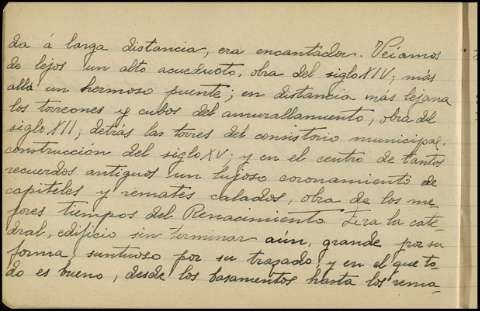 da á larga distancia, era encantador. Veíamos
de lejos un alto acueducto, obra del siglo XIV; más
allá un hermoso puente; en distancia más lejana
los torreones y cubos del amurallamiento, obra del
siglo XII; detrás las torres del consistorio municipal,
construcción del siglo XV; y en el centro de tantos
recuerdos antiguos un lujoso coronamiento de
capiteles y remates calados, obra de los me-
jores tiempos del Renacimiento. Era la cate-
dral, edificio sin terminar aún, grande por su
forma, suntuoso por su trazado, y en el que to-
do es bueno, desde los basamentos hasta los rema-